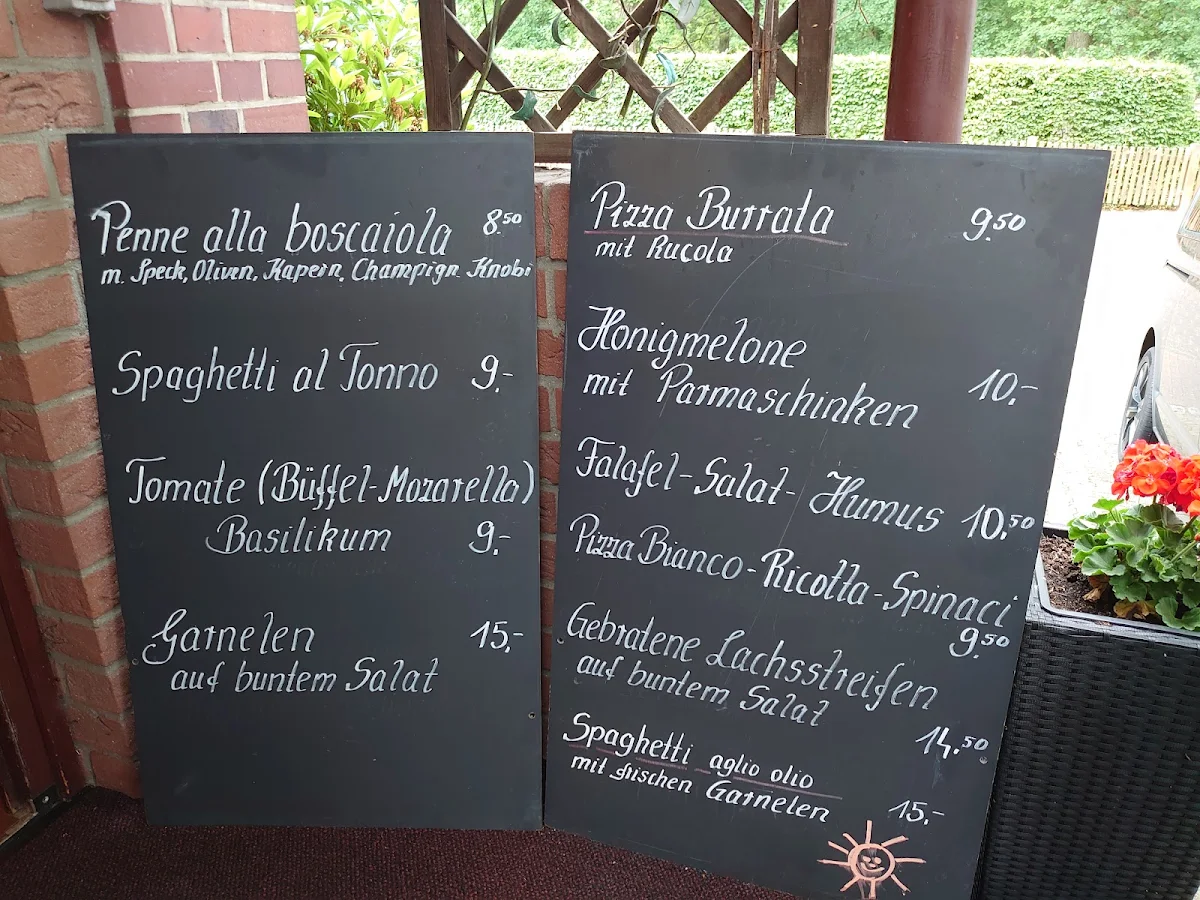 Penne alla boscaiola 8.50
m. Speck, Oliven, Kapern, Champign. Knobi
Spaghetti al Tonno 9.-
Tomate (Büffel-Mozarella)
Basilikum 9.-
Garnelen 15.-
auf buntem Salat
Pizza Burrata 9.50
mit Rucola
Honigmelone
mit Parmaschinken 10.-
Falafel-Salat-Humus 10.50
Pizza Bianco-Ricotta-Spinaci
9.50
Gebratene Lachsstreifen
auf buntem Salat
14.50
Spaghetti aglio olio
mit frischen Garnelen 15.-